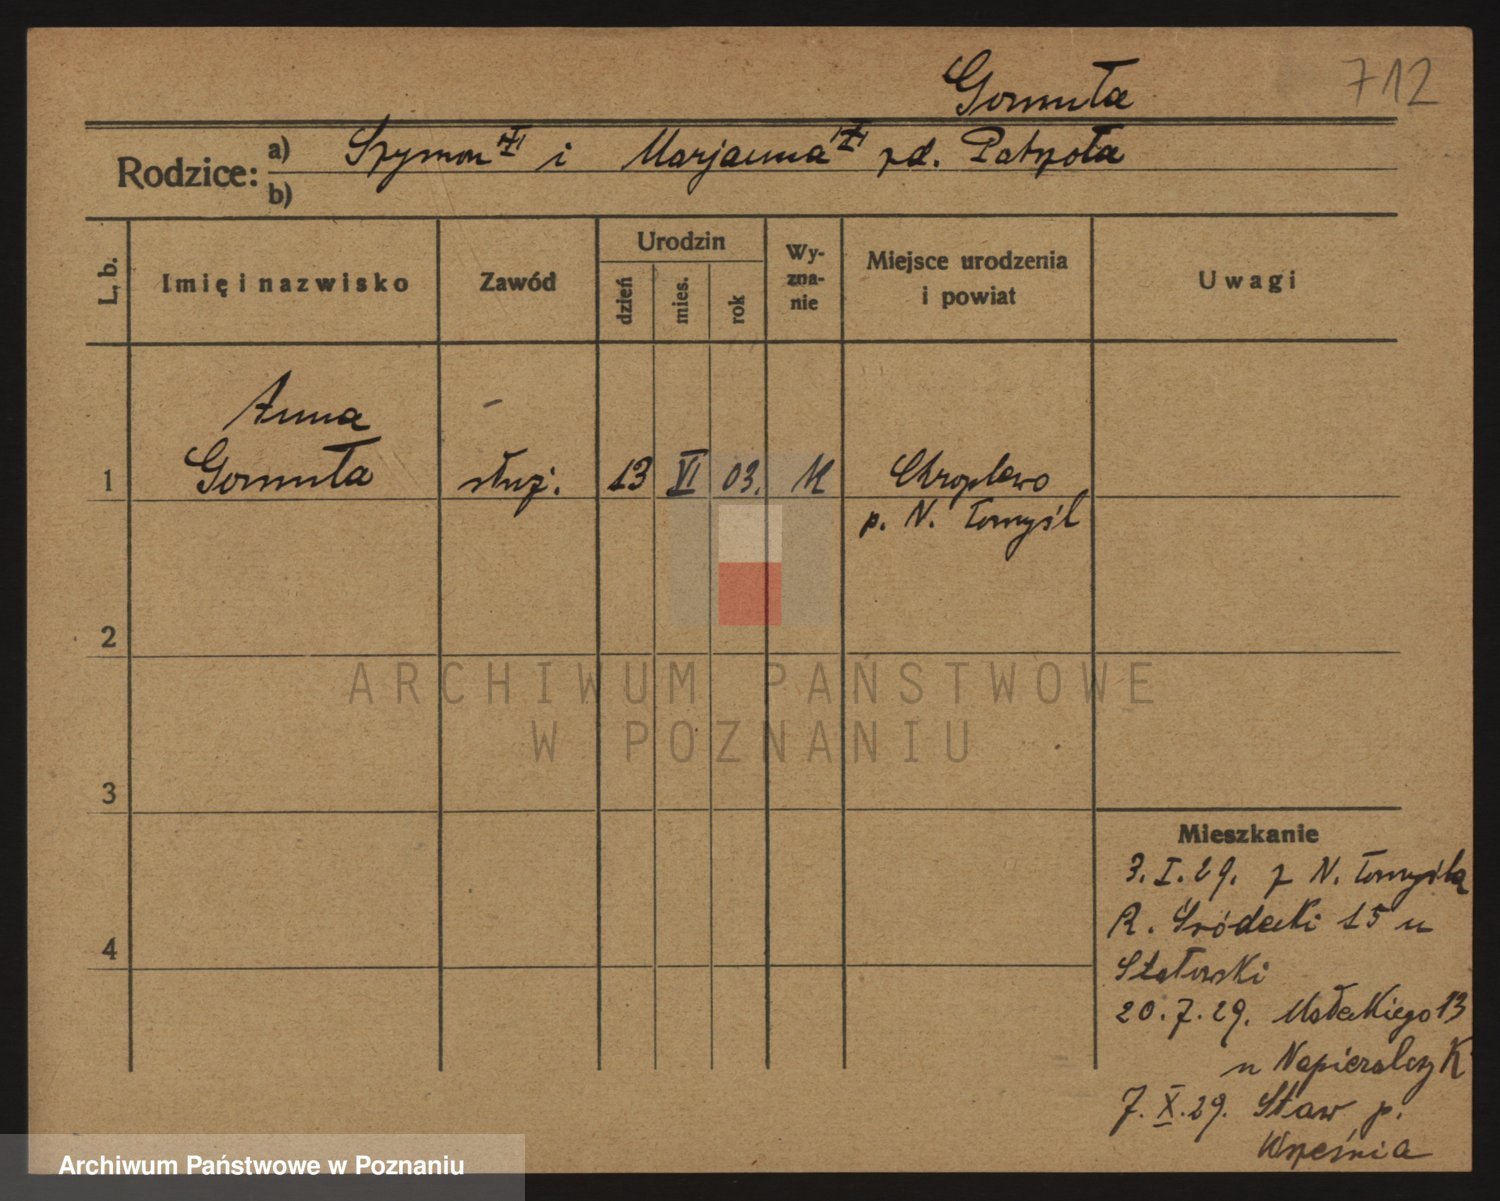 712
Gomuła
Rodzice: a) Szymon i Marjanna zd. Patrzoła
b)
L. b. Imię i nazwisko Zawód Urodzin dzień mies. rok Wy-zna-nie Miejsce urodzenia i powiat Uwagi
Anna
1 Gomuła służ. 13 VI 03. K Chroplewo
p. N. Tomyśl
2
ARCHIWUM PAŃSTWOWE
W POZNANIU
3
Mieszkanie
3.I.29. z N. Tomyśla
R. Śródecki 15 u
4
20.7.29. Małeckiego 13
u Napieralczyk
7.X.29. Staw p.
Września
Archiwum Państwowe w Poznaniu